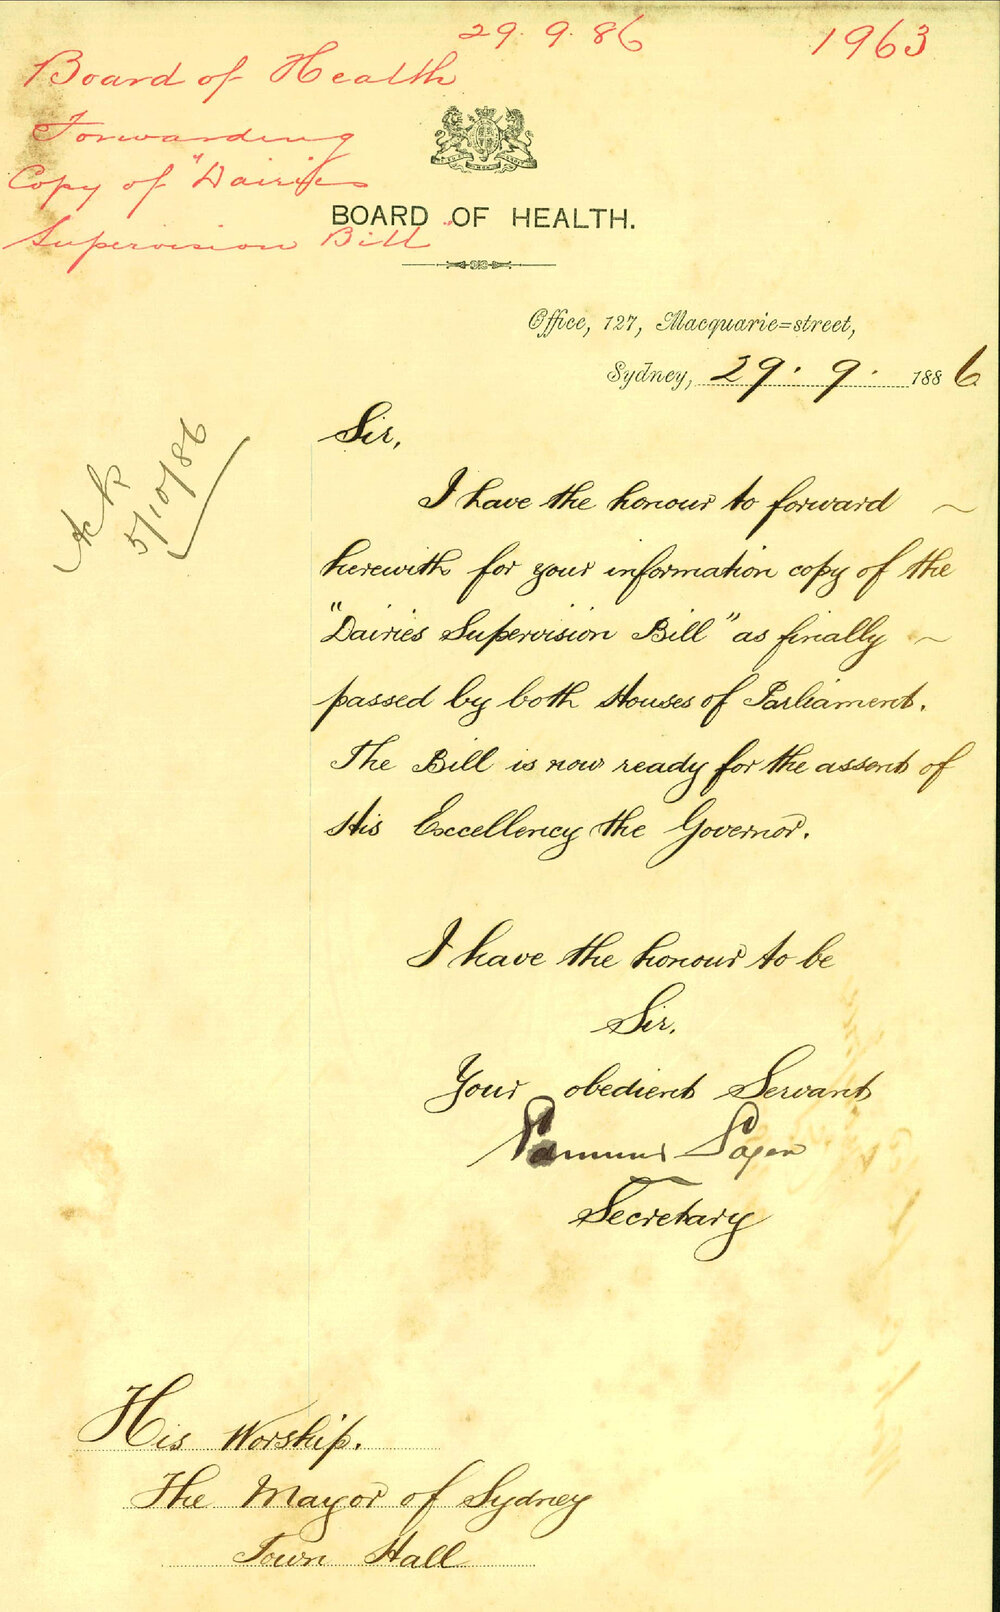 29.9.86
1963
Board of Health
Forwarding
Copy of "Dairies
Supervision Bill"
BOARD OF HEALTH.
Office, 127, Macquarie=street,
Sydney, 29. 9. 1886
Ack
5/10/86
Sir,
I have the honour to forward ~
herewith for your information copy of the
"Dairies Supervision Bill" as finally ~
passed by both Houses of Parliament.
The Bill is now ready for the assent of
His Excellency the Governor.
I have the honour to be
Sir.
Your obedient Servant
Edmund Sager
Secretary
His Worship.
The Mayor of Sydney
Town Hall